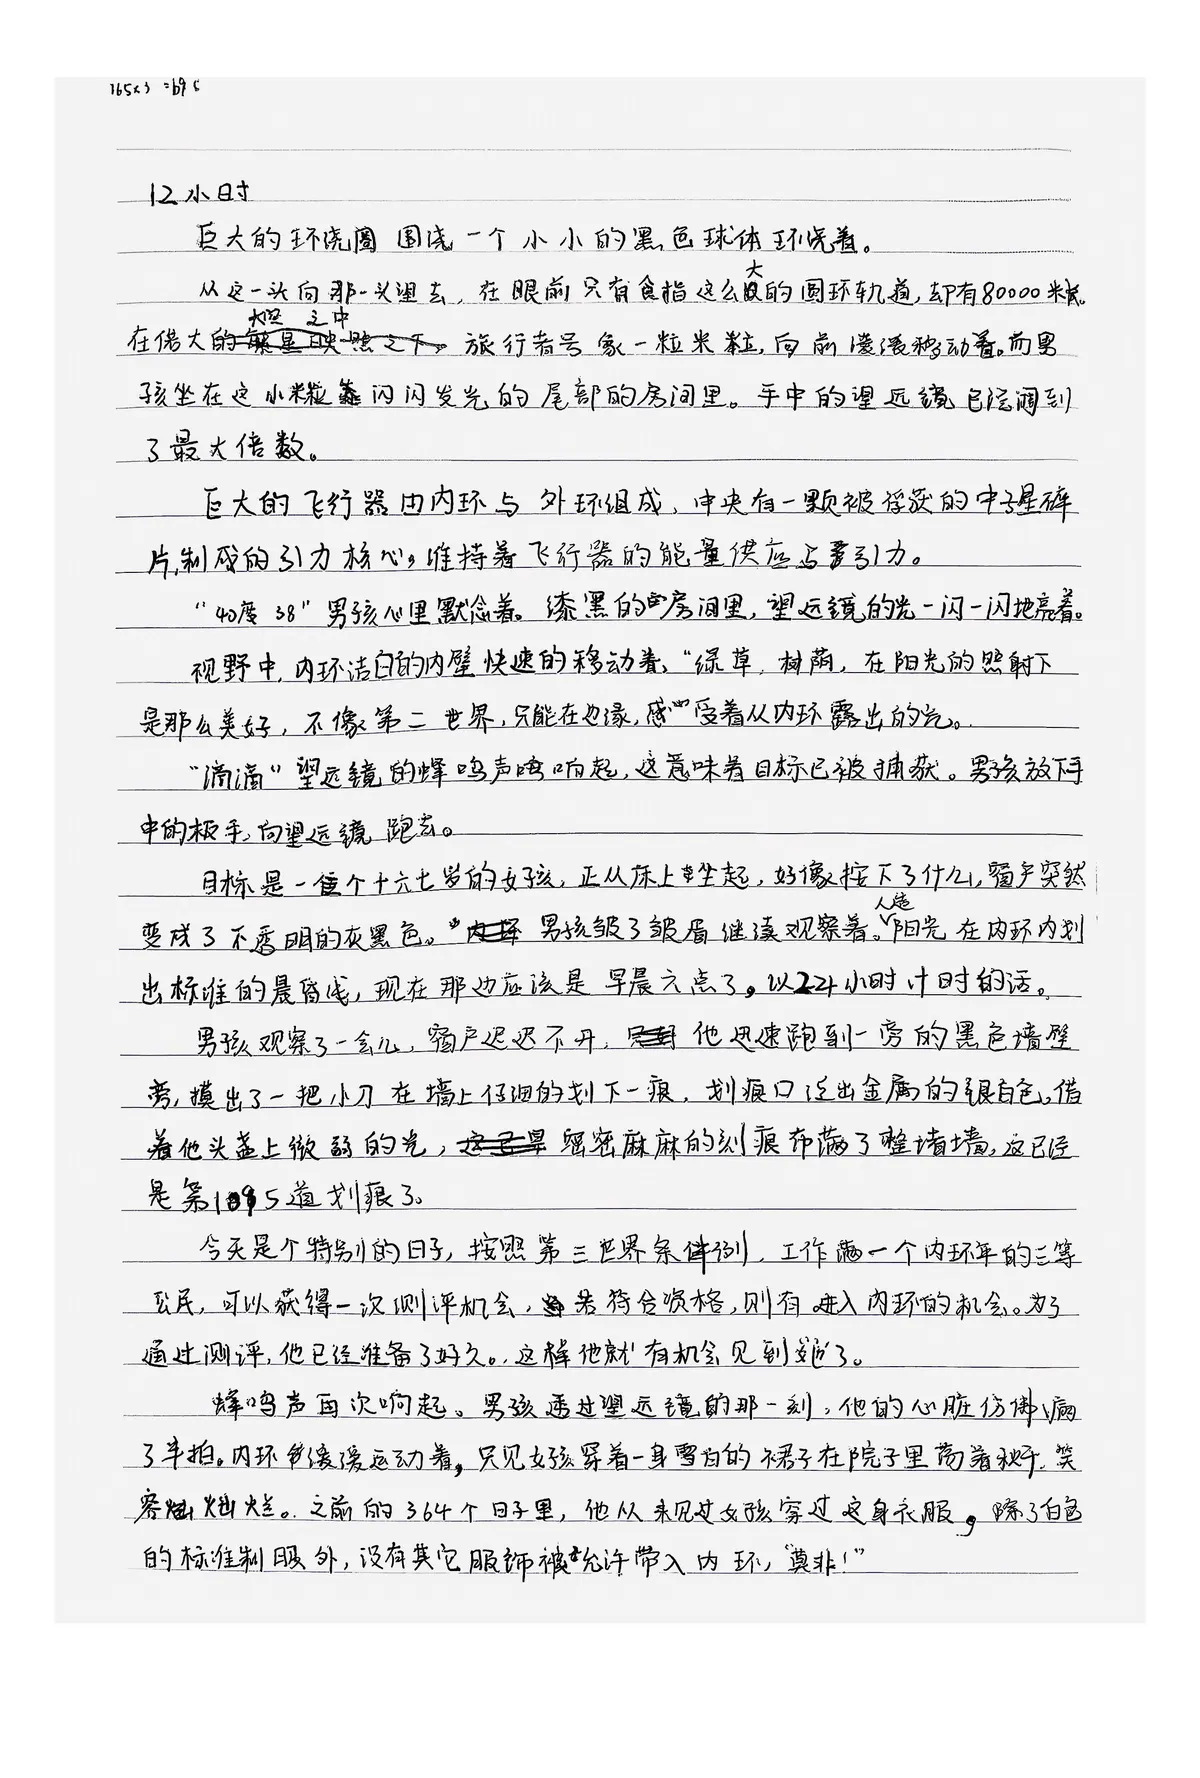 365x3 =1095
12小时
巨大的环绕圈 围绕一个小小的黑色球体环绕着。
大
从这一头向那一头望去，在眼前只有食指这么的圆环轨道，却有80000米长。
太空 之中
在偌大的繁星映照之下，旅行者号像一粒米粒，向前缓缓移动着。而男
孩坐在这小米粒闪闪发光的尾部的房间里。手中的望远镜已经调到
了最大倍数。
巨大的飞行器由内环与外环组成，中央有一颗被俘获的中子星碎
片，制成的引力核心，维持着飞行器的能量供应与重引力。
“40度 38”男孩心里默念着。漆黑的房间里，望远镜的光一闪一闪地亮着。
视野中，内环洁白的内壁快速的移动着，“绿草，树荫，在阳光的照射下
是那么美好，不像第二世界，只能在边缘，感受着从内环露出的光。
“滴滴”望远镜的蜂鸣声响起，这意味着目标已被捕获。男孩放下手
中的板手，向望远镜跑去。
目标是一个十六七岁的女孩，正从床上坐起，好像按下了什么，窗户突然
人造
变成了不透明的灰黑色。“内环 男孩皱了皱眉继续观察着。阳光在内环内划
出标准的晨昏线，现在那边应该是早晨六点了。以24小时计时的话。
男孩观察了一会儿，窗户迟迟不开，他迅速跑到一旁的黑色墙壁
旁，摸出了一把小刀在墙上仔细的划下一痕，划痕口泛出金属的银白色，借
着他头盖上微弱的光，密密麻麻的刻痕布满了整堵墙，这已经
是第1095道划痕了。
今天是个特别的日子，按照第三世界条例，工作满一个内环年的三等
公民，可以获得一次测评机会，若符合资格，则有进入内环的机会。为了
通过测评，他已经准备了好久。这样他就有机会见到她了。
蜂鸣声再次响起。男孩透过望远镜的那一刻，他的心脏仿佛漏
了半拍。内环缓缓运动着，只见女孩穿着一身雪白的裙子在院子里荡着秋千，笑
容灿烂。之前的364个日子里，他从未见过女孩穿过这身衣服，除了白色
的标准制服外，没有其它服饰被允许带入内环，“莫非！”